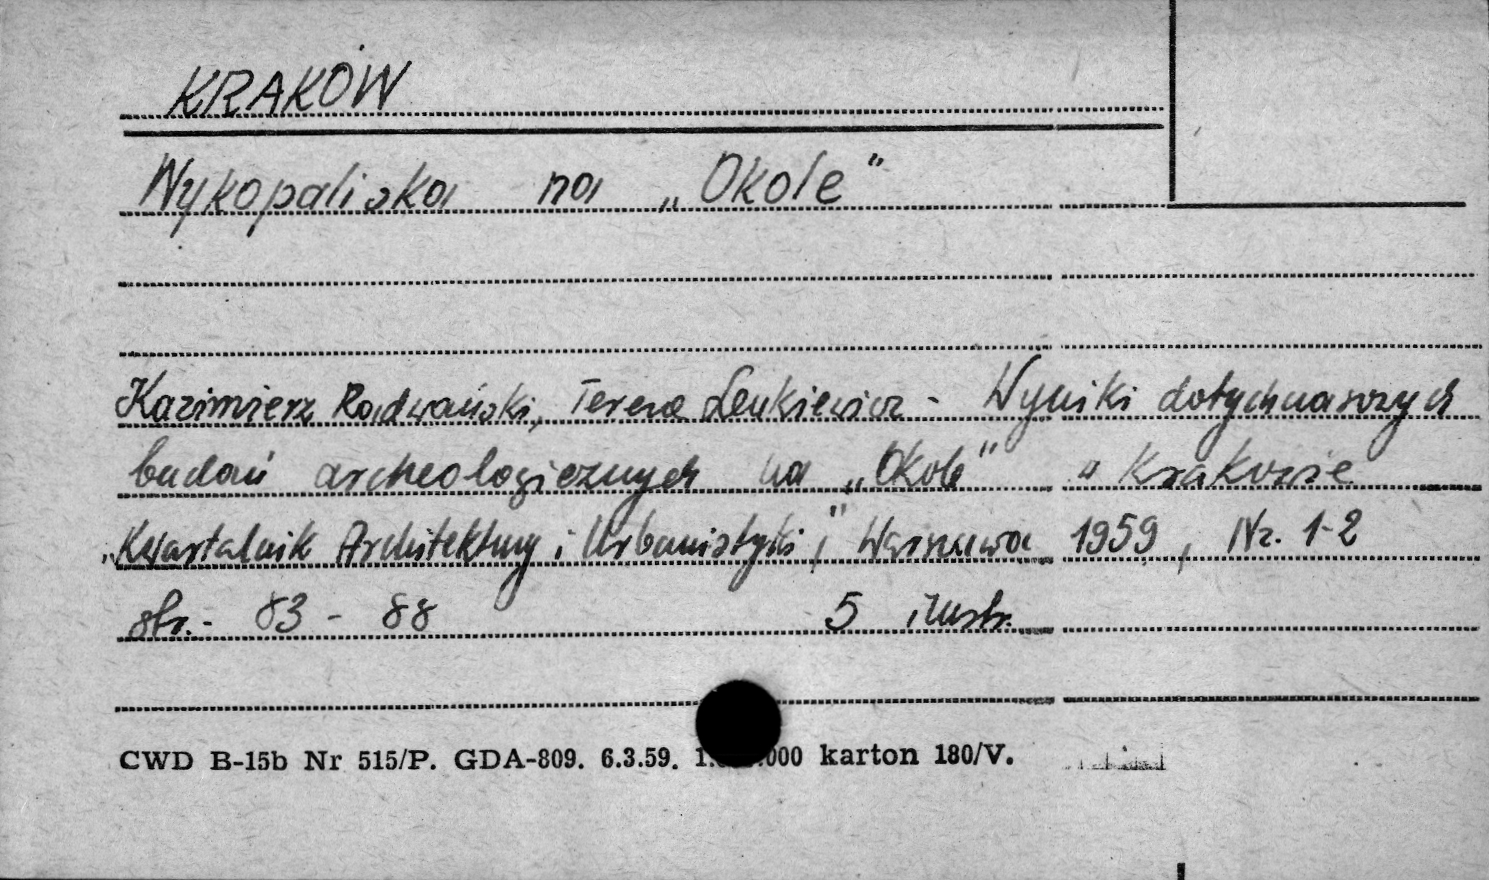 KRAKÓW
Wykopaliska na „Okole”
Kazimierz Radwański, Teresa Lenkiewicz - Wyniki dotychczasowych
badań archeologicznych na „Okole” w Krakowie
„Kwartalnik Architektury i Urbanistyki”, Warszawa 1959, Nr. 1-2
str. - 83 - 88 5 ilustr.
CWD B-15b Nr 515/P. GDA-809. 6.3.59. 000 karton 180/V.